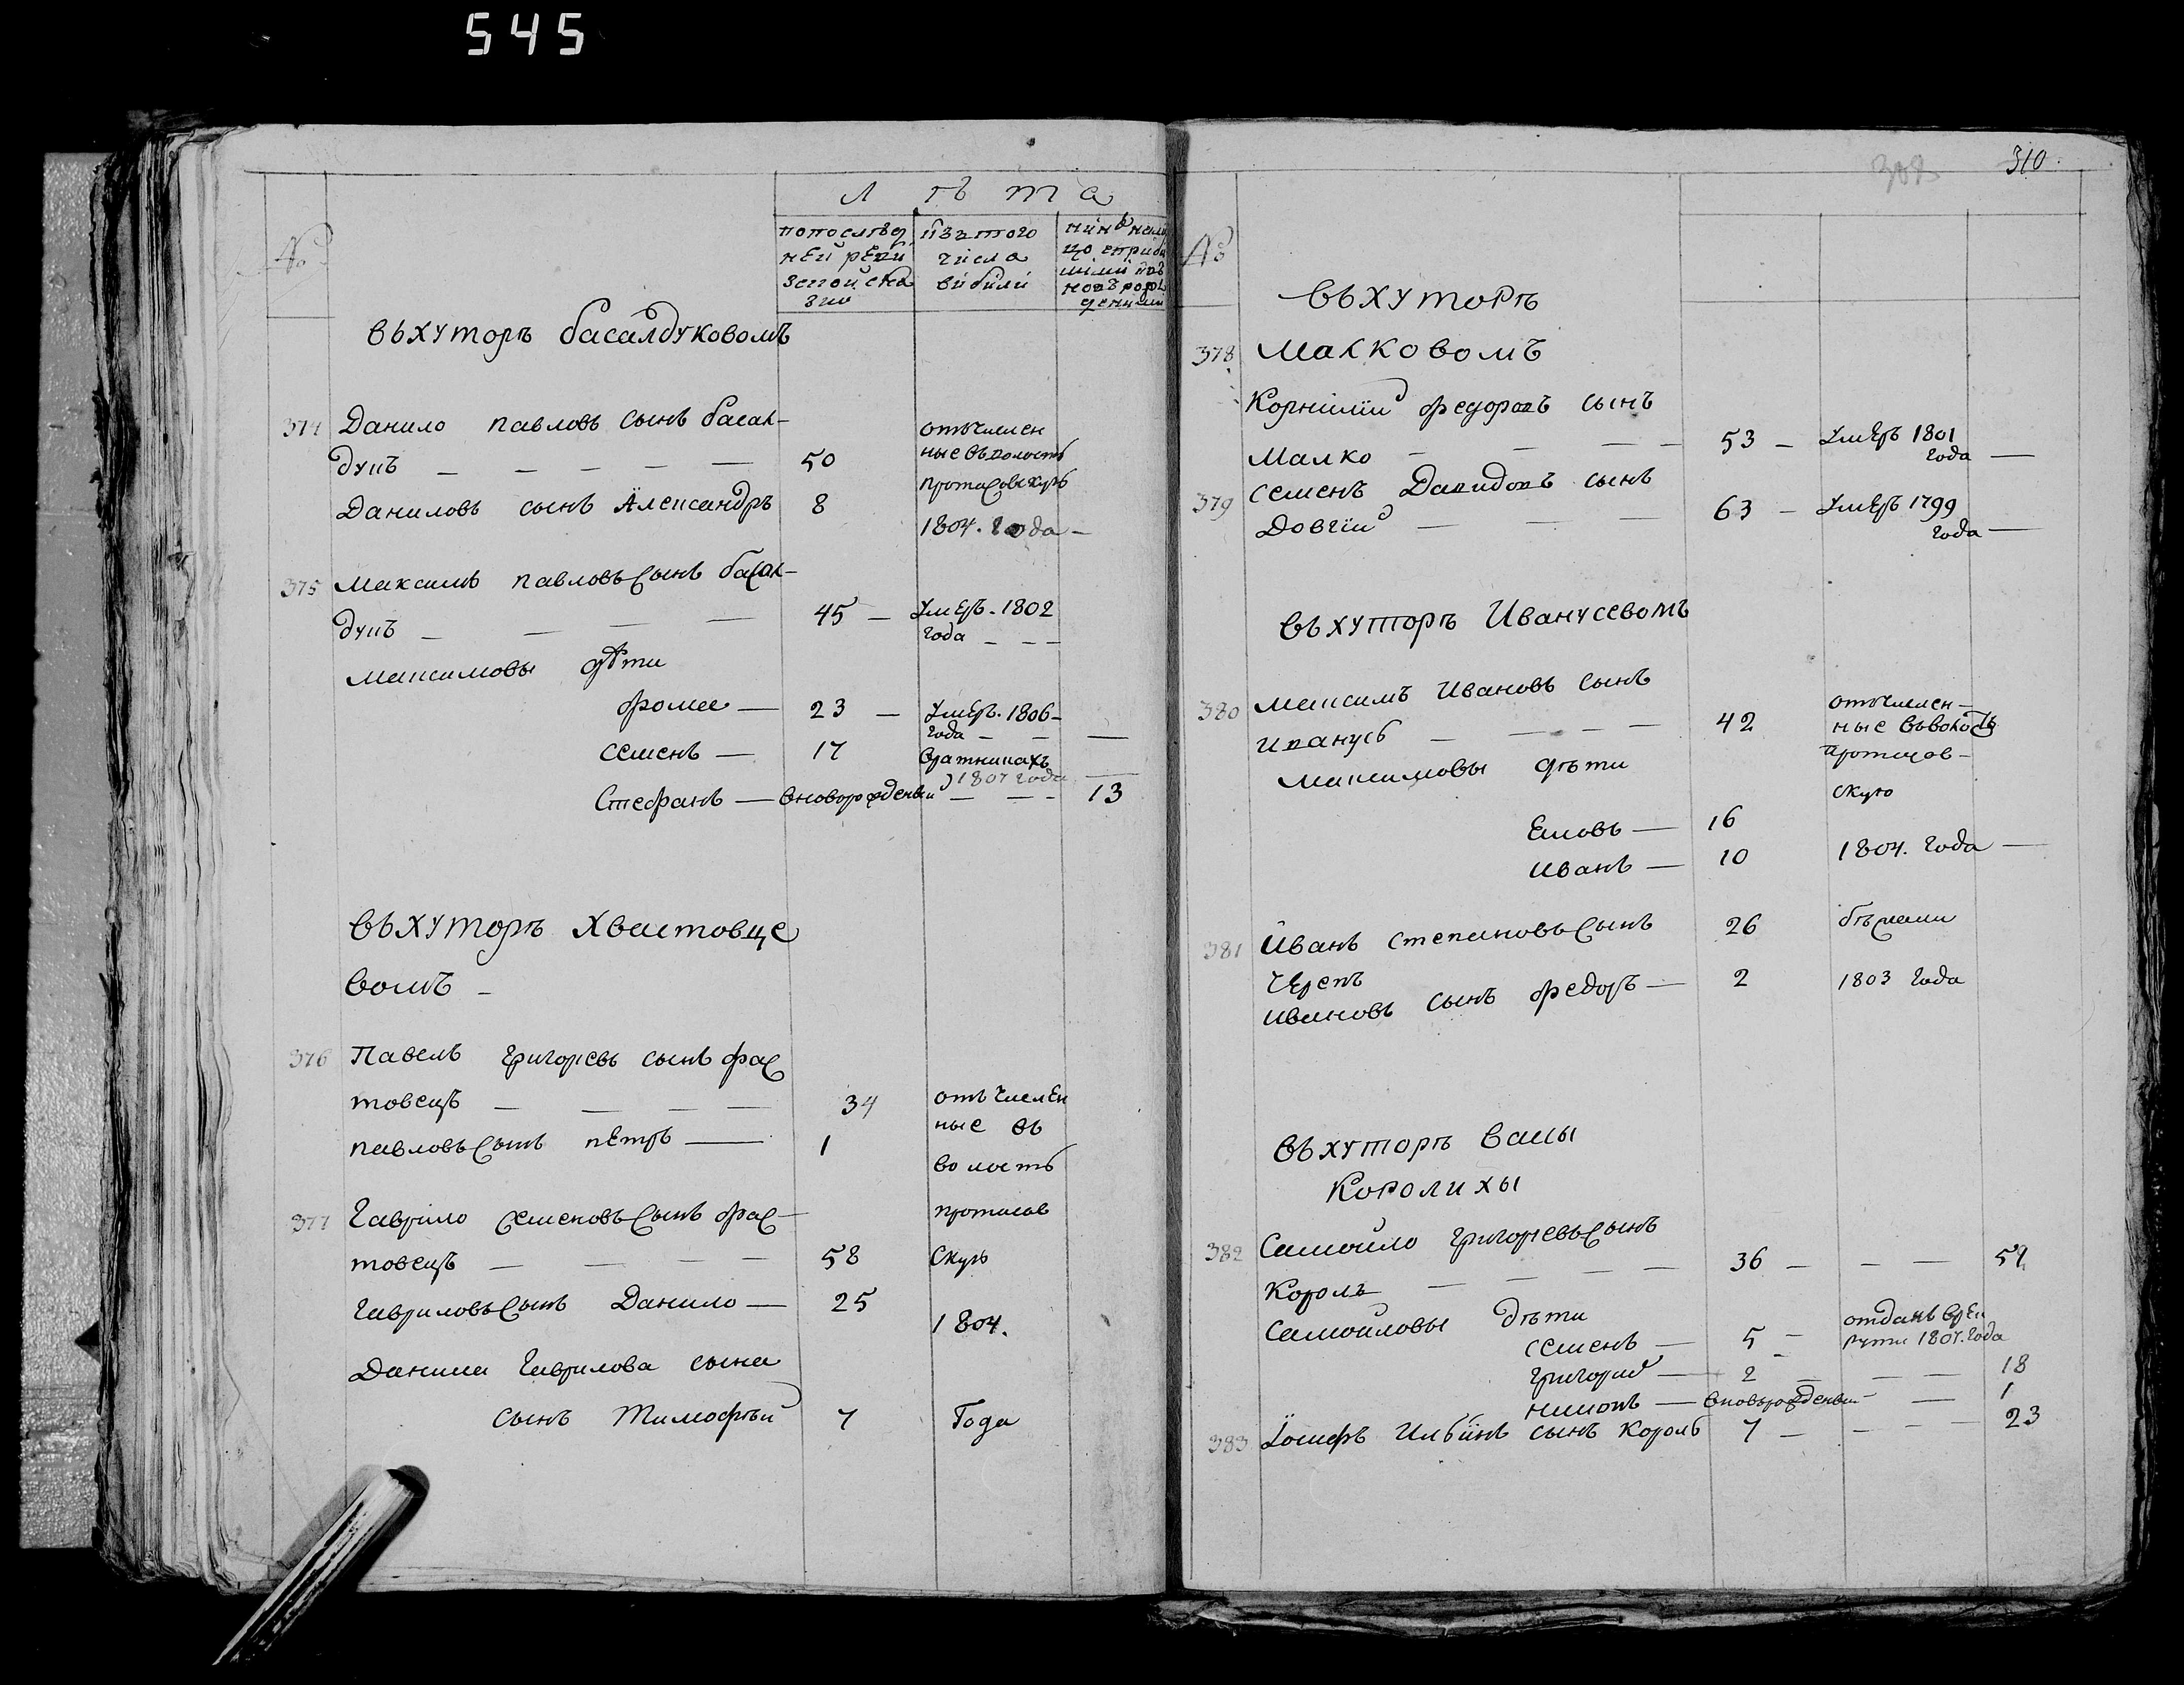 545
Лѣта
№
попослѣд
ней реви
зской ска
зки
изътого
числа
выбыли
нинѣ нали
цо
новъ рож
денными
въхуторѣ басалдуковомъ
374 Данило павловъ сынъ басал-
дукъ — 50
отъчислен
ные въволость
протасовскую
Даниловъ сынъ Александръ 8
1804. года —
375 Максимъ павловъ сынъ басал-
дукъ — 45 — умеръ. 1802
года — — —
максимовы дѣти
фома — 23 — умеръ. 1806 —
года — — —
семенъ — 17
вратникахъ
1807 года —
Стефанъ — вноворожденый — — — 13
въхуторѣ хвастовце
вомъ —
376 Павелъ григорьевъ сынъ фас
товецъ — — — — 34
отъчислен
ные въ
павловъ сынъ петръ — 1
волость
377 Гаврило семеновъ сынъ фас-
протасов
товецъ — — — — 58
скую
гавриловъ сынъ Данило — 25
1804.
Данила гаврилова сына
сынъ Тимофѣй 7
Года
308
310.
№
въхуторѣ
378 малковомъ
Корнилий федоровъ сынъ
Малко — — — 53 — умеръ 1801
года —
379 семенъ Давидовъ сынъ
Довгий — — — 63 — умеръ 1799
года —
въхуторѣ Иванусевомъ
380 максимъ Ивановъ сынъ
Иванусь — — — 42
отъчислен-
ные въволость
протасов-
скую
максимовы дѣти
Еловъ — 16
иванъ — 10
1804. года —
381 Иванъ степановъ сынъ 26
бѣжали
Черепъ
ивановъ сынъ федоръ — 2
1803 года
въхуторѣ вапы
Королихы
382 Самойло григорьевъ сынъ
Король — — — — 36 — — — 52
самойловы дѣти
семенъ — 5 —
отданъ врек
руты 1807. года
григорий — 2 — — — 18
никонъ — вноворожденый — — 1
383 Іосифъ Ильинъ сынъ король 7 — — — 23